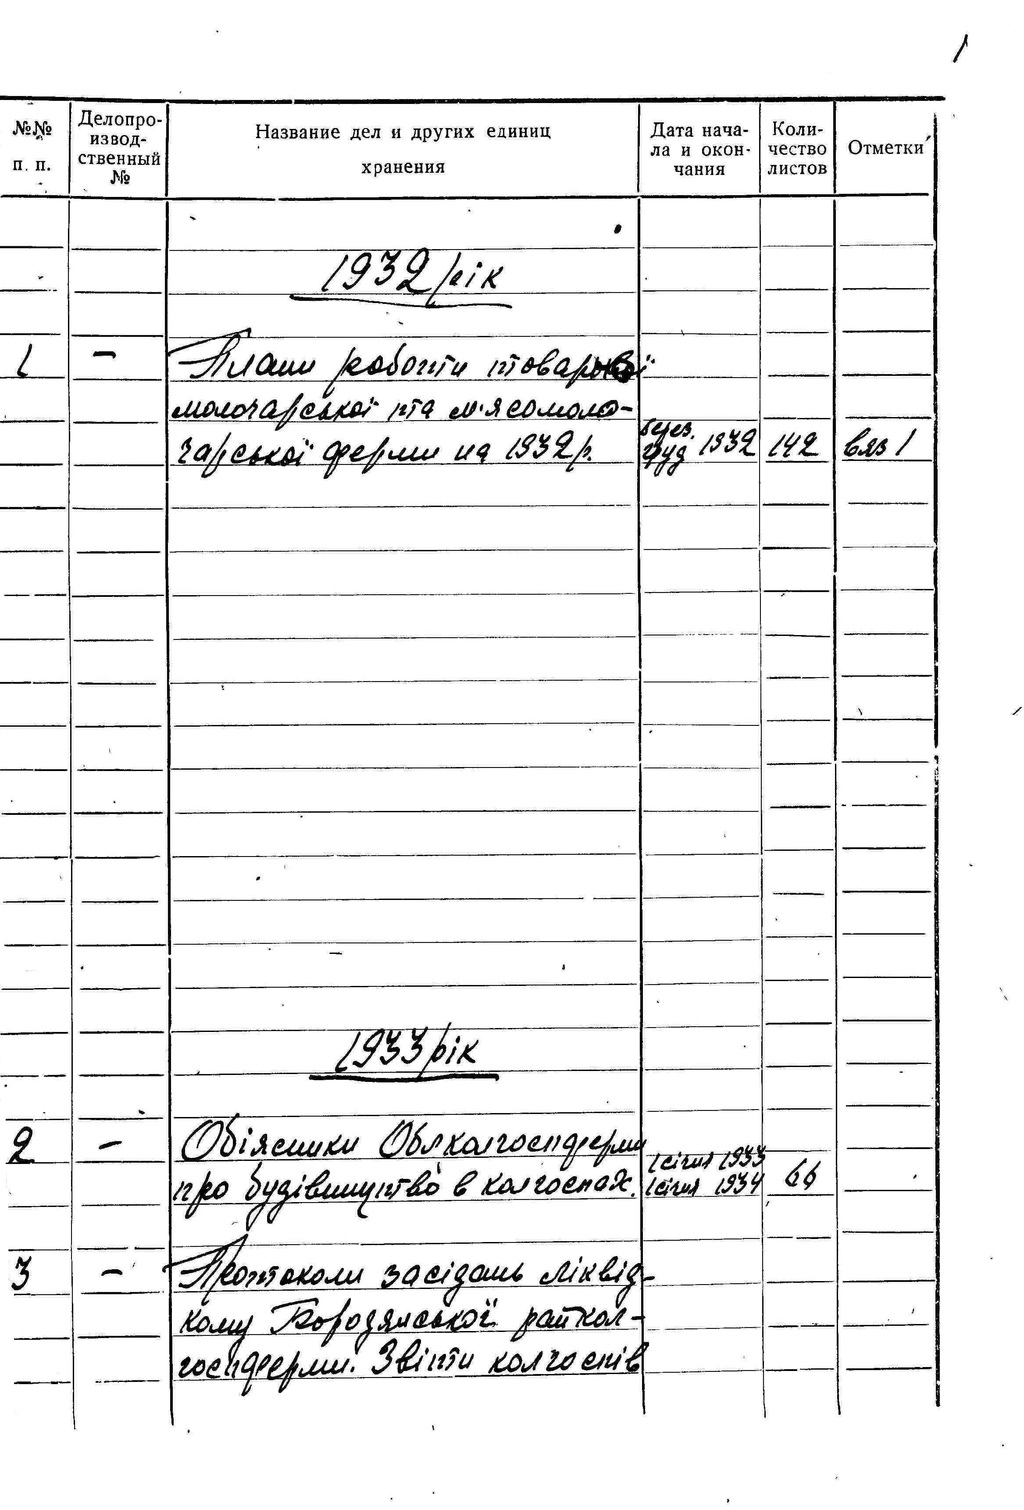 1
№№ п. п.
Делопро-
извод-
ственный
№
Название дел и других единиц
хранения
Дата нача-
ла и окон-
чания
Коли-
чество
листов
Отметки
1932 рік
1 – Плани роботи товарової
молочарської та м'ясомоло-
чарської ферми на 1932 р. берез. груд 1932 142 вяз 1
1933 рік
2 – Обіясники Облколгоспферми січня 1933
про будівництво в колгоспах. січня 1934 66
3 – Протоколи засідань ліквід-
кому Бородянської райкол-
госпферми. Звіти колгоспів